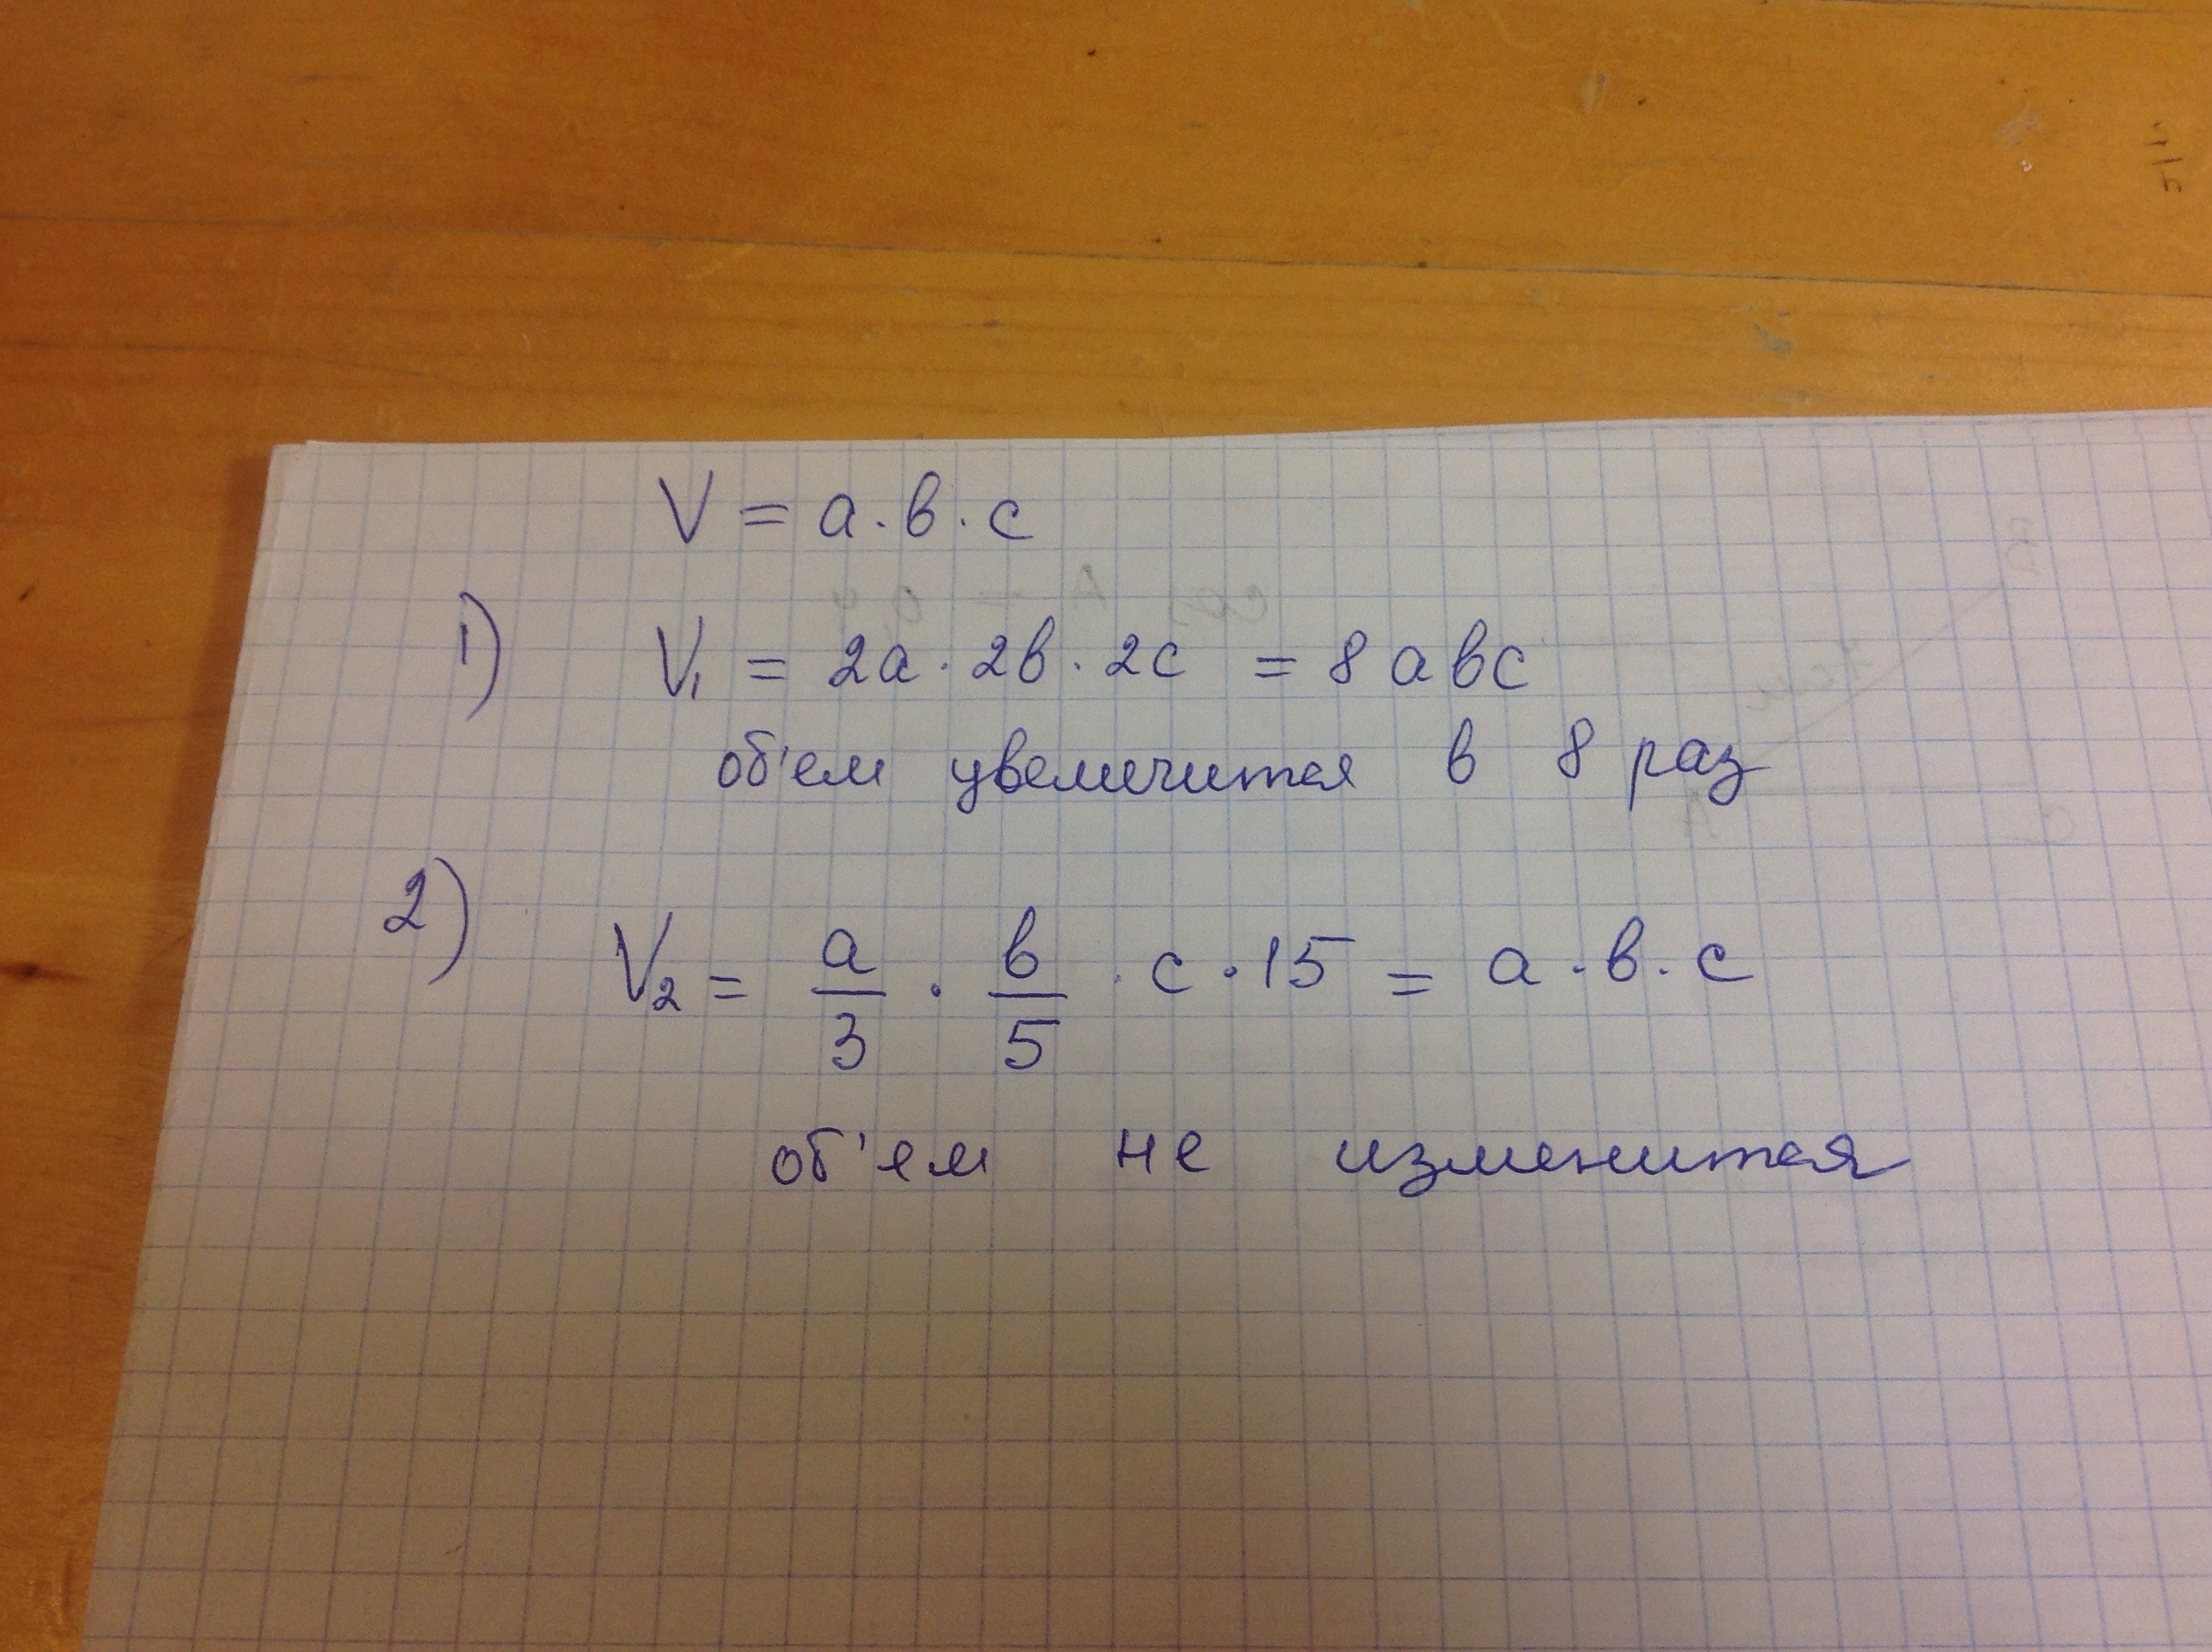 V = a · в · c
1) V₁ = 2a · 2в · 2c = 8 авс
об'ем увеличится в 8 раз
2) V₂ = a/3 · в/5 · c · 15 = a · в · c
об'ем не изменится